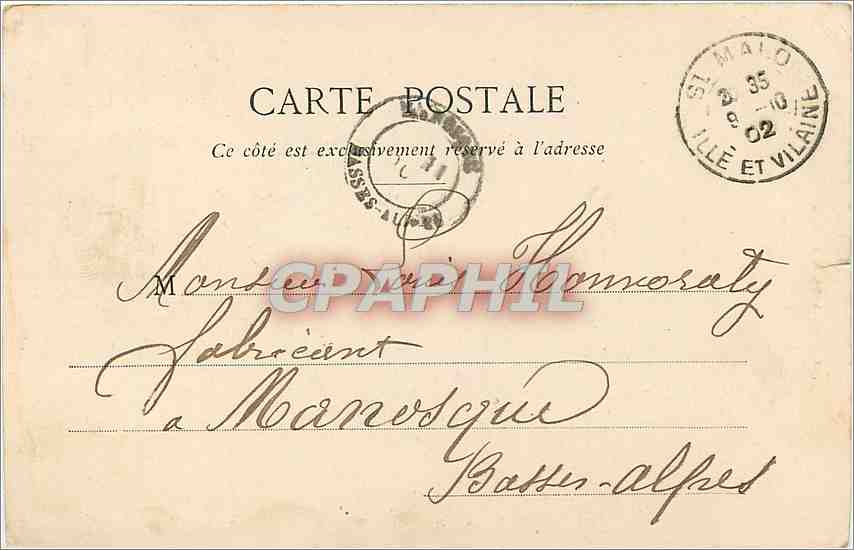 CARTE POSTALE
Ce côté est exclusivement réservé à l'adresse
ST MALO
35
9 -10
02
ILLE ET VILAINE
11
BASSES-ALPES
Monsieur Louis Honnoraty
fabricant
a Manosque
Basses-Alpes
CPAPHIL